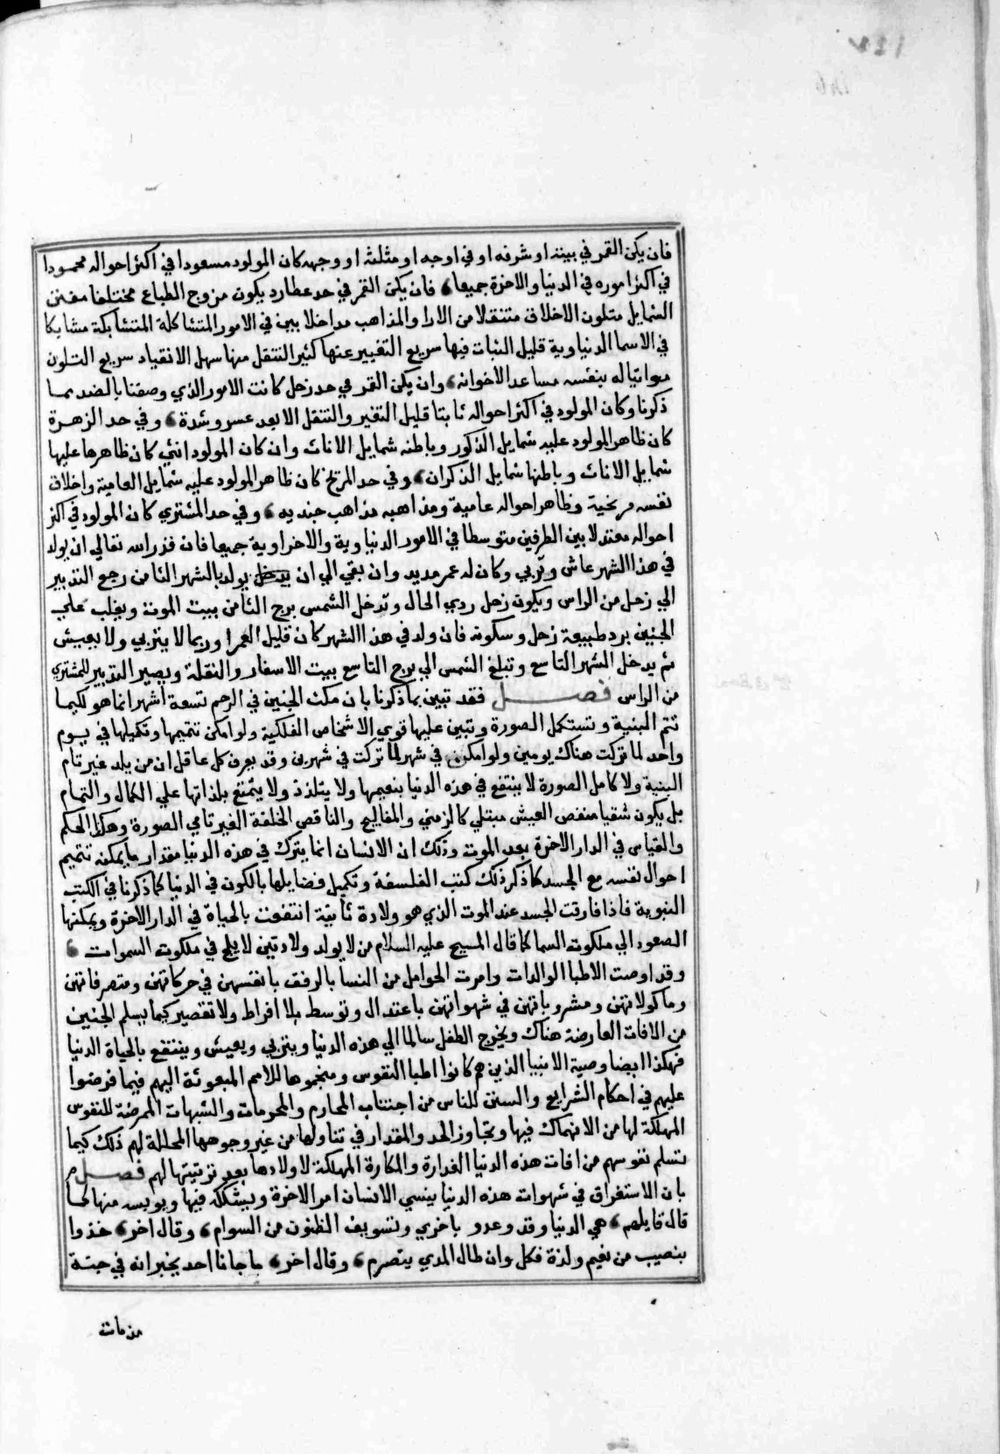 فان يكن القمر في بيته او شرفه او في اوجه او مثلثه او وجهه كان المولود مسعودا في اكثر احواله محمودا
في اكثر اموره في الدنيا والاخرة جميعا، فان يكن القمر في حد عطارد يكون مزوج الطباع مختلفا مفنن
الشمايل متلون الاخلاق متنقلا من الارا والمذاهب مداخلا بين في الامور المتشاكلة المتشابكة مشابكا
في الاسما الدنياوية قليل الثبات فيها سريع التغيير عنها كثير التنقل منها سهل الانقياد سريع التلون
مواتيا له بنفسه مساعد الاخوانه، وان يكن القمر في حد زحل كانت الامور الذي وصفنا بالضد مما
ذكرنا وكان المولود في اكثر احواله ثابتا قليل التغير والتنقل الا بعد عسر وشدة، وفي حد الزهرة
كان ظاهر المولود عليه شمايل الذكور وباطنه شمايل الاناث وان كان المولود انثي كان ظاهرها عليها
شمايل الاناث وباطنها شمايل الذكران، وفي حد المريخ كان ظاهر المولود عليه شمايل العامية واخلاق
نفسه مريخية وظاهر احواله عامية ومذاهبه مذاهب جنديه، وفي حد المشتري كان المولود في اكثر
احواله معتدلا بين الطرفين متوسطا في الامور الدنياوية والاخراوية جميعا فان قدر الله تعالي ان يولد
في هذا الشهر عاش وتربي وكان له عمر مديد وان بقي الي ان يدخل يولد بالشهر الثامن رجع التدبير
الي زحل من الراس ويكون زحل ردي الحال وتدخل الشمس برج الثامن بيت الموت ويغلب علي
الجنين برد طبيعة زحل وسكونه فان ولد في هذا الشهر كان قليل العمر وربما لا يتربي ولا يعيش
ثم يدخل الشهر التاسع وتبلغ الشمس الي برج التاسع بيت الاسفار والنقلة ويصير التدبير للمشتري
من الراس فصل فقد تبين بما ذكرنا بان مكث الجنين في الرحم تسعة اشهر انما هو لكيما
تتم البنية وتستكمل الصورة وتبين عليها قوي الاشخاص الفلكية ولو امكن تتميمها وتكميلها في يوم
واحد لما تركت هناك يومين ولو امكن في شهر لما تركت في شهرين وقد يعرف كل عاقل ان من يلد غير تام
البنية ولا كامل الصورة لا ينتفع في هذه الدنيا بنعيمها ولا يتلذذ ولا يتمتع بلذاتها علي الكمال والتمام
بل يكون شقيا منغص العيش مبتلي كالزمني والمفاليج والناقص الخلقة الغير تامي الصورة وهكذا الحكم
والقياس في الدار الاخرة بعد الموت وذلك ان الانسان انما يترك في هذه الدنيا مقدار ما يمكنه تتميم
احوال نفسه مع الجسد كما ذكر ذلك كتب الفلسفة وتكميل فضايلها بالكون في الدنيا كما ذكرنا في الكتب
النبوية فاذا فارقت الجسد عند الموت الذي هو ولادة ثانية انتفعت بالحياة في الدار الاخرة ويمكنها
الصعود الي ملكوت السما كما قال المسيح عليه السلام من لا يولد ولادتين لا يلج في ملكوت السموات ،
وقد اوصت الاطبا الوالدات وامرت الحوامل من النسا بالرفق بانفسهن في حركاتهن ومتصرفاتهن
وماكولاتهن ومشروباتهن في شهواتهن باعتدال وتوسط بلا افراط ولا تقصير كيما يسلم الجنين
من الافات العارضة هناك ويخرج الطفل سالما الي هذه الدنيا ويتربي ويعيش وينتفع بالحياة الدنيا
فهكذا ايضا وصية الانبيا الذين هم كانوا اطبا النفوس ومنجموها للامم المبعوثة اليهم فيما فرضوا
عليهم في احكام الشرايع والسنن للناس من اجتناب المحارم والمحرمات والشبهات الممرضة للنفوس
المهلكة لها من الانهماك فيها وتجاوز الحد والمقدار في تناولها من غير وجوهها المحللة لهم ذلك كيما
تسلم نفوسهم من افات هذه الدنيا الغدارة والمكارة المهلكة لاولادها بعد تربيتها لهم فصل
بان الاستغراق في شهوات هذه الدنيا ينسي الانسان امر الاخرة ويشككه فيها ويويسه منها كما
قال قايلهم ، هي الدنيا وقد وعدو باخري وتسويف الظنون من السوام ، وقال اخر ، خذوا
بنصيب من نعيم ولذة فكل وان طال المدي يتصرم ، وقال اخر ، ما جانا احد يخبر انه في جنة
من مات